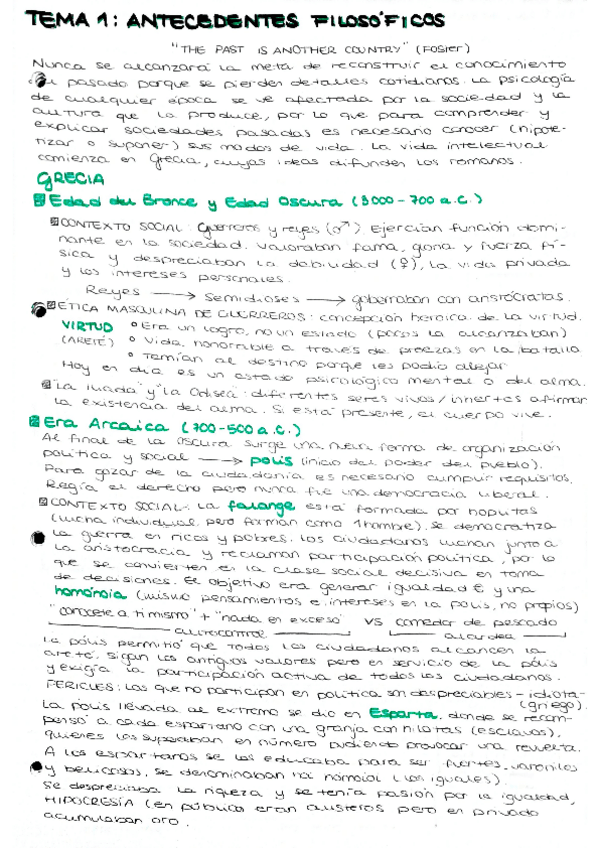 TEMA 1: ANTECEDENTES FILOSÓFICOS
"THE PAST IS ANOTHER COUNTRY" (Foster)
Nunca se alcanzará la meta de reconstruir el conocimiento
del pasado porque se pierden detalles cotidianos. La psicología
de cualquier época se ve afectada por la sociedad y la
cultura que la produce, por lo que para comprender y
explicar sociedades pasadas es necesario conocer (hipote-
tizar o suponer) sus modos de vida. La vida intelectual
comienza en Grecia, cuyas ideas difunden los romanos.
GRECIA
Edad del Bronce y Edad Oscura (3000-700 a.C.)
CONTEXTO SOCIAL: Guerreros y reyes (♂). Ejercían función domi-
nante en la sociedad. Valoraban fama, gloria y fuerza fí-
sica y despreciaban la debilidad (♀), la vida privada
y los intereses personales.
Reyes → semidioses → gobernaban con aristócratas.
ÉTICA MASCULINA DE GUERREROS: concepción heroica de la virtud.
VIRTUD ° Era un logro, no un estado (pocos la alcanzaban)
(ARETÉ) ° Vida honorable a través de proezas en la batalla
° Temían al destino porque les podía alejar
Hoy en día es un estado psicológico mental o del alma.
"La Iliada" y "La Odisea": diferentes seres vivos/inertes afirmar
la existencia del alma. Si está presente, el cuerpo vive.
Era Arcaica (700-500 a.C.)
Al final de la oscura surge una nueva forma de organización
política y social → polis (inicio del poder del pueblo).
Para gozar de la ciudadanía es necesario cumplir requisitos.
Regía el derecho pero nunca fue una democracia liberal.
CONTEXTO SOCIAL: La falange está formada por hoplitas
(lucha individual, pero forman como 1 hombre), se democratiza
la guerra en ricos y pobres. Los ciudadanos luchan junto a
la aristocracia y reclaman participación política, por lo
que se convierten en la clase social decisiva en toma
de decisiones. El objetivo era generar igualdad € y una
homónoia (mismo pensamientos e intereses en la polis, no propios)
"conócete a ti mismo" + "nada en exceso" VS comedor de pescado
autocontrol
La polis permitió que todos los ciudadanos alcancen la
areté. Sigan los antiguos valores pero en servicio de la polis
y exigía la participación activa de todos los ciudadanos.
PERICLES: Los que no participan en política son despreciables - idiota
(griego).
La polis llevada al extremo se dio en Esparta, donde se recom-
pensó a cada espartano con una granja con hilotas (esclavos),
quienes los superaban en número pudiendo provocar una revuelta.
A los espartanos se les educaba para ser fuertes, varoniles
y belicosos, se denominaban hoi homoioi (los iguales).
Se despreciaba la riqueza y se tenía pasión por la igualdad,
HIPOCRESÍA (en público eran austeros pero en privado
acumulaban oro.